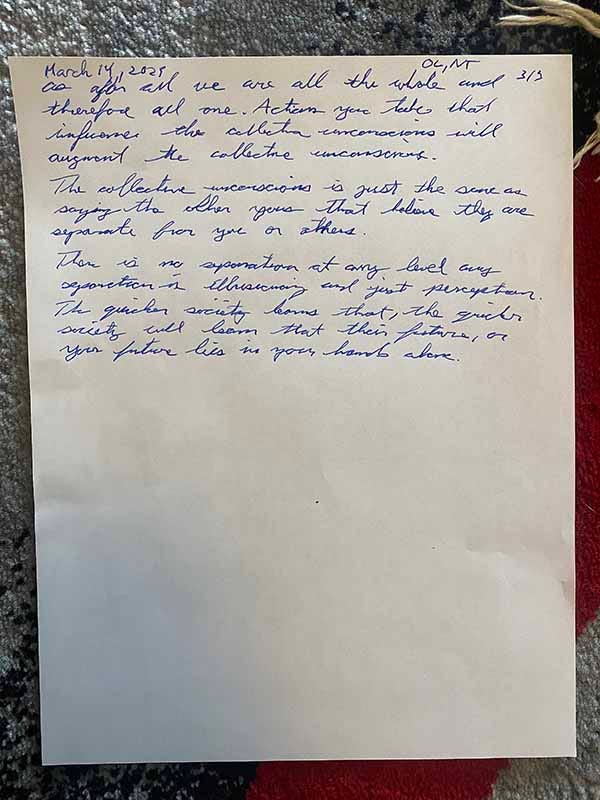 March 14, 2025 OC, NT 3/3
as after all we are all the whole and
therefore all one. Actions you take that
influence the collective unconscious will
augment the collective unconscious.
The collective unconscious is just the same as
saying the other yous that believe they are
separate from you or others.
There is no separation at any level any
separation is illusionary and just perception.
The quicker society learns that, the quicker
society will learn that their future, or
your future lies in your hands alone.